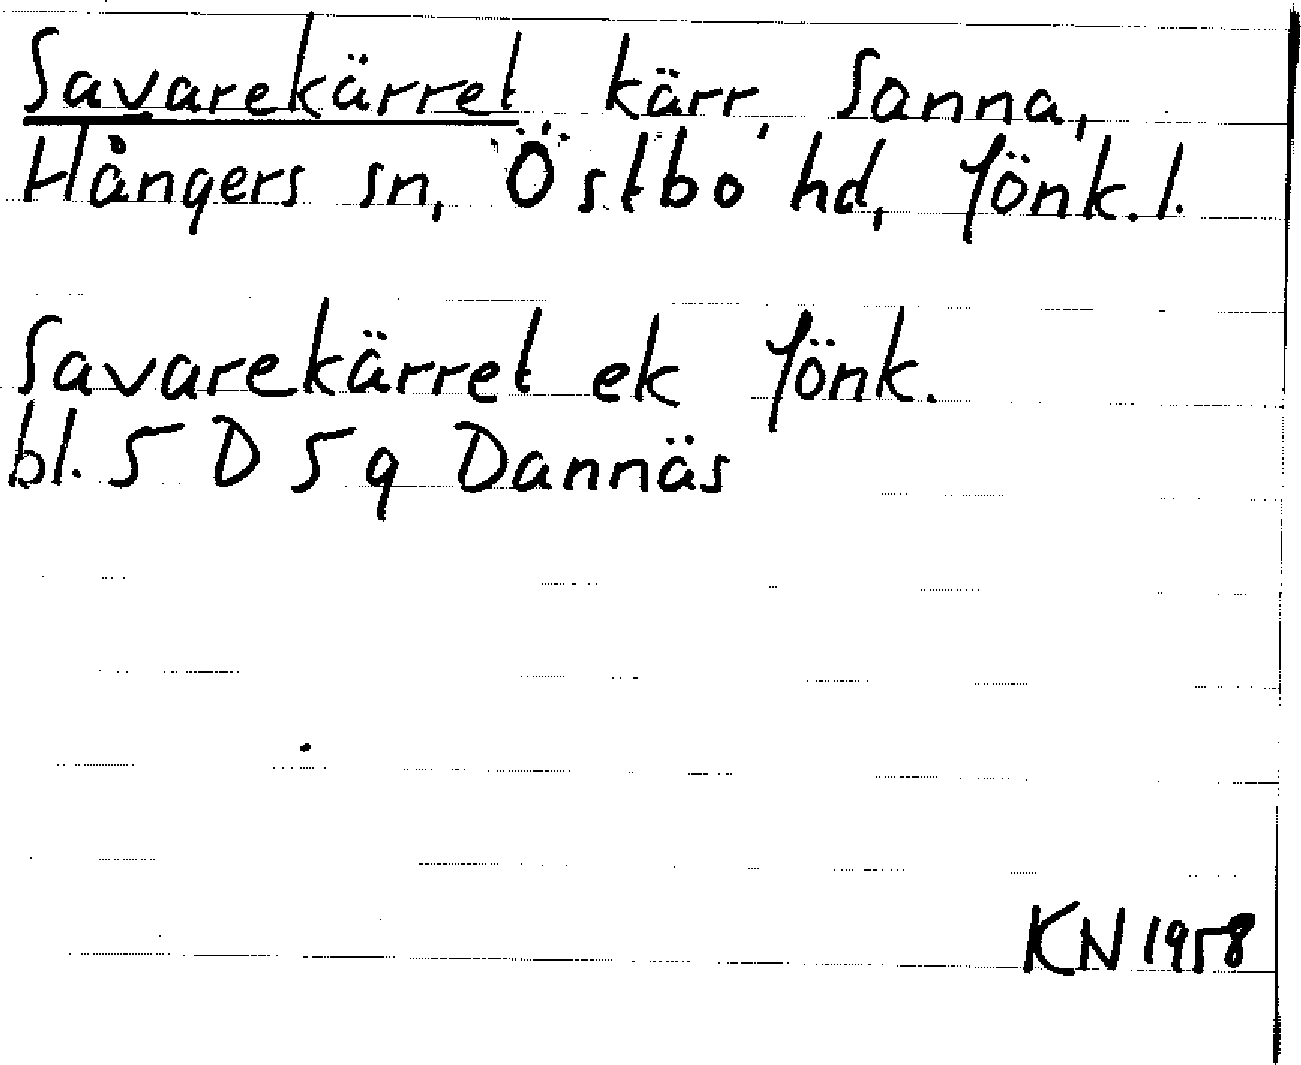 Savarekärret, kärr, Sanna,
Hångers sn, Östbo hd, Jönk. l.
Savarekärret ek Jönk.
bl. 5 D 5 g Dannäs
KN 1958